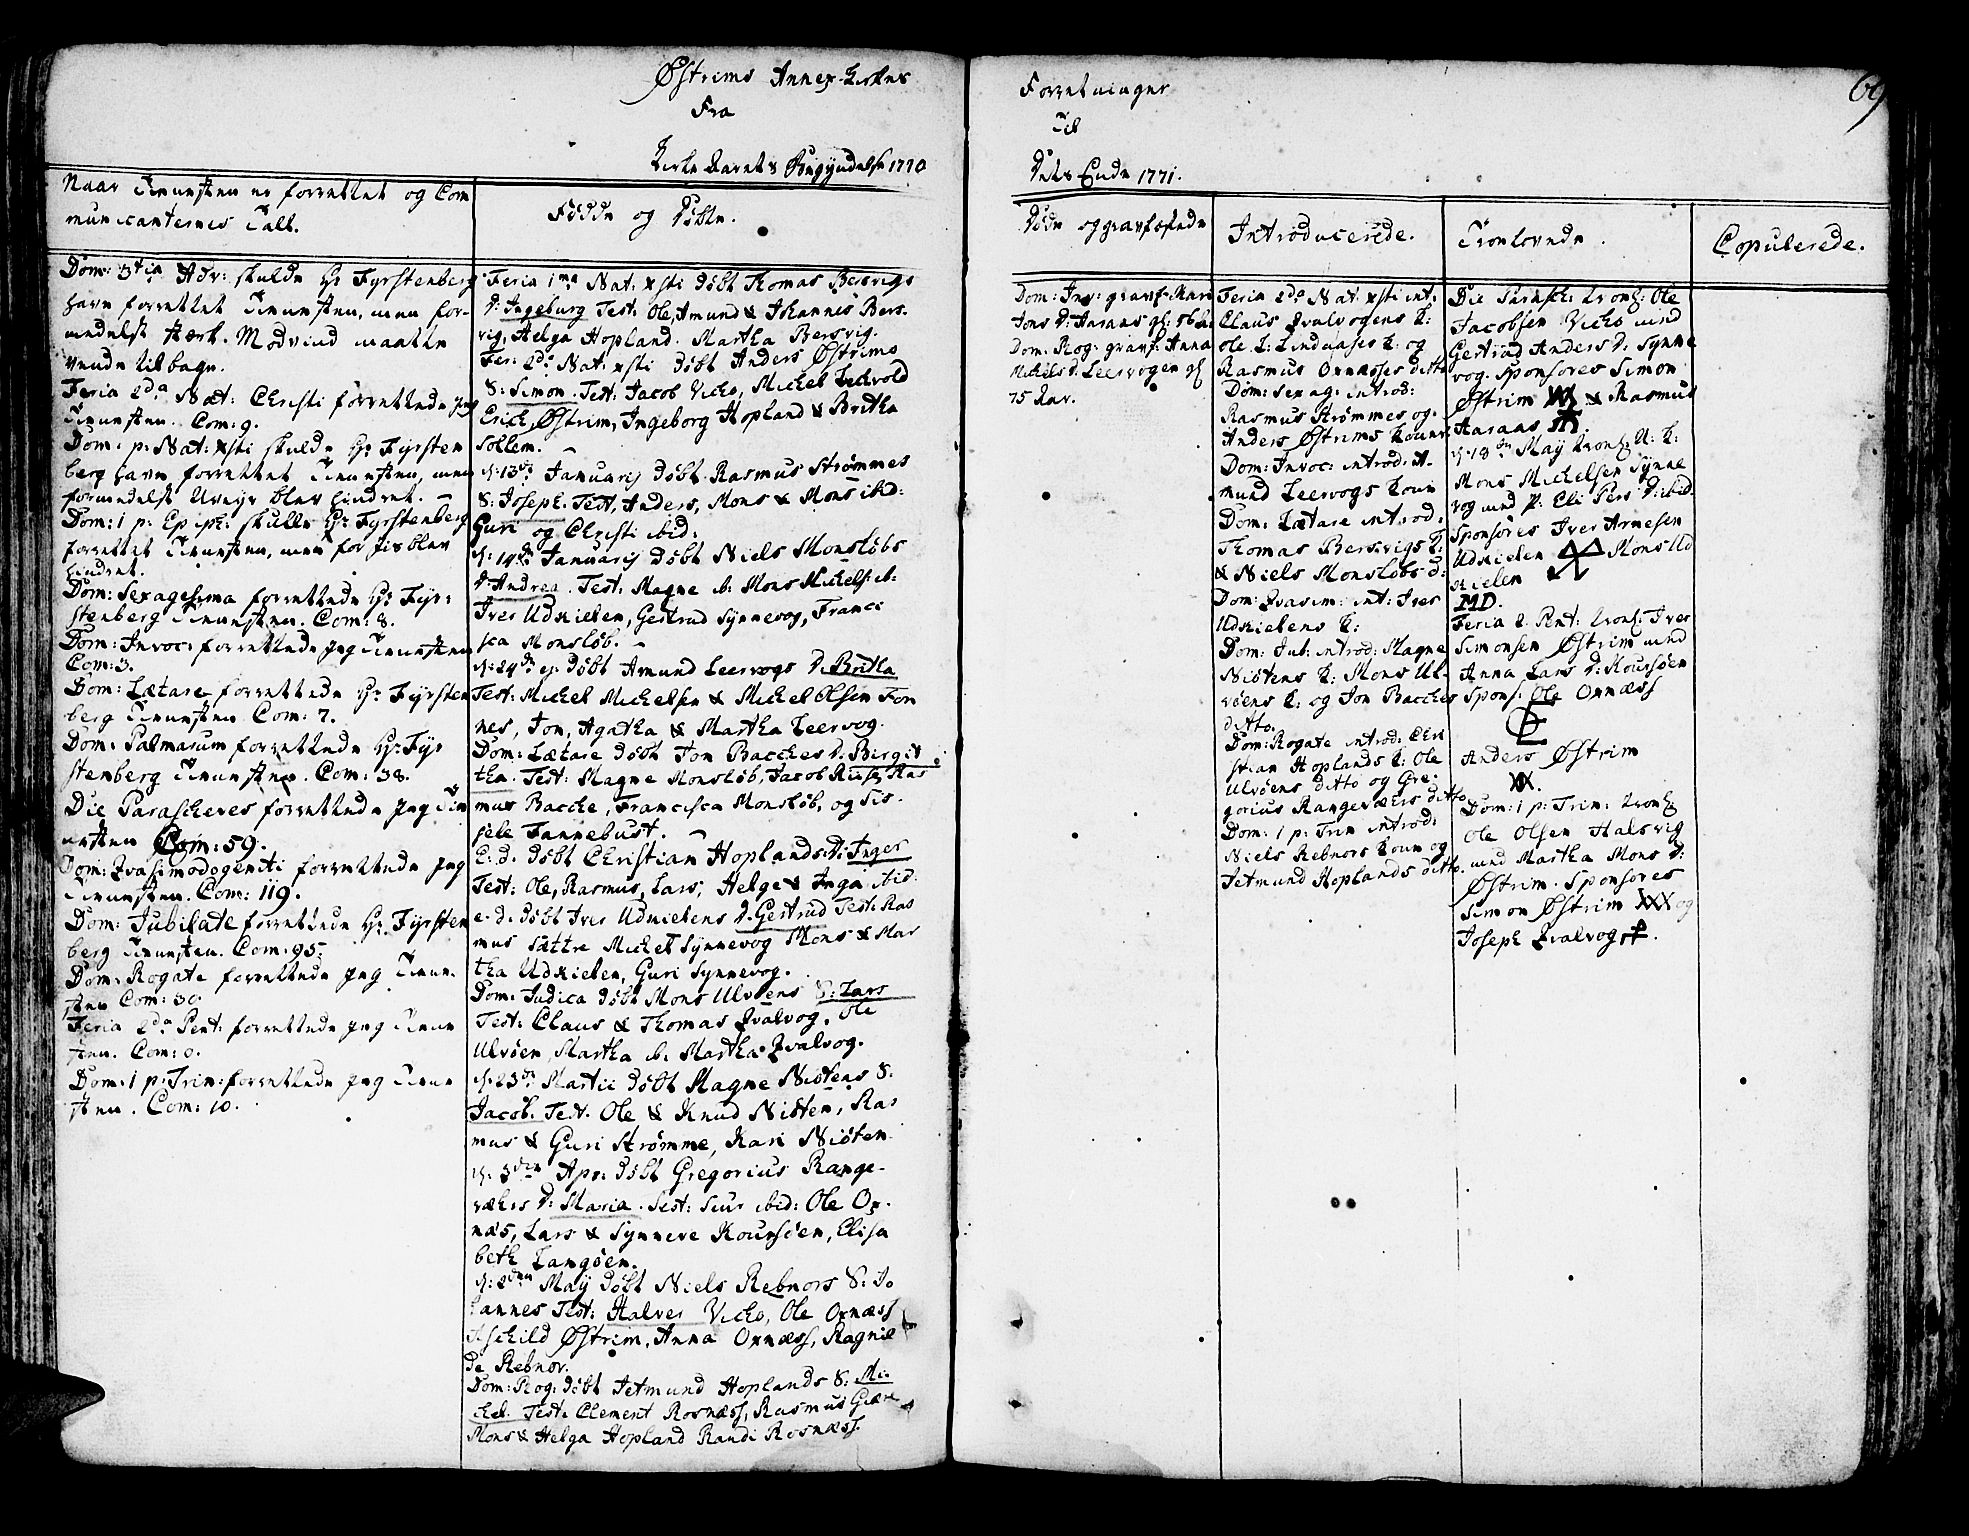 Østrims Annex-Kirkes
Fra
Kirke Aarets Begyndelse 1770
Naar Tienesten er forrettet og Com
municanternes Tall.
Fødde og Døbte.
Dom: 3tia Adv: skulde Hr Fyrstenberg
have forrettet Tienesten, men for-
medelst stærk Modvind maatte
vende tilbage.
Feria 2da Nat: Christi forrettede jeg
Tienesten. Com: 9.
Dom: p: Nat: xsti skulde Hr Fyrsten
berg have forrettet Tienesten, men
formedelst Uveyr blev hindret.
Dom: 1 p: Epiph: skulle Hr Fyrstenberg
forrettet Tienesten, men for Jis blev
hindret.
Dom: Sexagesima forrettede Hr Fyr-
stenberg Tienesten. Com: 8.
Dom: Invoc: forrettede jeg Tienesten
Com: 3.
Dom: Lætare forrettede Hr Fyrsten
berg Tienesten Com: 7.
Dom: Palmarum forrettede Hr Fyr
stenberg Tienesten. Com: 38.
Die Parasceves forrettede jeg Tien
esten Com: 59.
Dom: Qvasimodogeniti forrettede jeg
Tienesten. Com: 119.
Dom: Jubilate forrettede Hr Fyrsten
berg Tienesten. Com: 95.
Dom: Rogate forrettede jeg Tiene
sten Com: 30.
Feria 2da Pent: forrettede jeg Tiene
sten. Com: 0.
Dom: 1 p: Trin: forrettede jeg Tiene
sten. Com: 10.
Feria 1ma Nat: xsti døbt Thomas Bersvigs
D: Ingeburg Test: Ole, Amund & Johannes Bers-
vig, Helga Hopland. Martha Bersvig.
Fer: 2da Nat: xsti døbt Anders Østrims
S: Simon. Test: Jacob Vicho, Michel
Erich Østrim, Ingeborg Hopland & Britha
Sollem.
d: 13de Januarij døbt Rasmus Strømmes
S: Joseph. Test, Anders, Mons & Mons ibid:
Guri og Christi ibid:
d: 14de Januarij døbt Niels Monsløbs
D: Andrea. Test: Magne ib: Mons Michels: ib:
Iver Udkielen, Gertrud Synnevog, Franci
sca Monsløb.
d: 24de ej: døbt Amund Leervogs D: Britha
Test: Michel Michelsen & Michel Olsen Fon
nes, Jon, Agatha & Martha Leervog.
Dom: Lætare døbt Jon Bacches D: Birgit
tha. Test: Magne Monsløb, Jacob Riise, Ras
mus Bacche, Francisca Monsløb, og Sis-
sele Fannebust.
E: d: døbt Christian Hoplands D: Inger
Test: Ole, Rasmus, Lars, Helge & Inga ibid:
e: d: døbt Iver Udkielens D: Gertrud Test: Ras
mus Sættre Michel Synnevog Mons & Mar
tha Udkielen, Guri Synnevog.
Dom: Judica døbt Mons Ulvøens S: Lars
Test: Claus & Thomas Qvalvog, Ole
Ulvøen, Martha ib: Martha Qvalvog.
d: 23de Martii døbt Magne Niøtens S:
Jacob. Test. Ole & Knud Niøten, Ras
mus & Guri Strømme, Kari Niøten
d: 3den Apr: døbt Gregorius Range-
væhrs D: Maria. Test: Siur ibid: Ole Ox-
næs, Lars & Synneve Kourøen, Elisa
beth Langøen.
d: 2den Maij døbt Niels Rebnors S: Jo
hannes Test: Halver Vicho, Ole Oxnæss
Aschild Østrim, Anna Oxnæss, Ragnil
da Rebnor.
Dom: Rog: døbt Jetmund Hoplands S: Mi-
chel. Test: Clement Rosnæss, Rasmus Giære
Mons & Helga Hopland Randi Rosnæss.
Forretninger
Til
Dets Ende 1771.
69
Døde og gravfæstede
Introducerede.
Troelovede
Copulerede.
Dom: Inv: gravf: Mari
Jons D: Aaraas gl: 56
Dom: Rog: gravf: Anna
Michels D: Leervogen gl
75 Aar.
Feria 2da Nat: xsti int:
Claus Qvalvogens K:
Ole L: Lindaases K: og
Rasmus Oxnæsses ditto
Dom: Sexag: introd:
Rasmus Strømmes og
Anders Østrims Koner
Dom: Invoc: introd: A-
mund Leervogs Kone
Dom: Lætare introd:
Thomas Bersvigs K:
& Niels Monsløbs d:
Dom: Qvasim: int: Iver
Udkielens K:
Dom: Jub: introd: Magne
Niøtens K: Mons Ul-
vøens K: og Jon Bacches
ditto.
Dom: Rogate introd: Chri
stian Hoplands K: Ole
Ulvøens ditto og Gre-
gorius Rangeværs ditto
Dom: 1 p: Trin introd:
Niels Rebnors Kone og
Jetmund Hoplands ditto.
Die Parasc: trol: Ole
Jacobsen Vicho med
Gertrud Anders D: Synne
vog. Sponsores Simon
Østrim & Rasmus
Aaraas
d: 18de Maij trol: U: K:
Mons Michelsen Synne
vog med P: Eli Pers D: ibid.
Sponsores Iver Arnesen
Udkielen Mons Ud
kielen
MD.
Feria 2 Pent: trol: Iver
Simonsen Østrim med
Anna Lars D: Kourøen
Spons: Ole Oxnæss
Anders Østrim
Dom: 1 p: Trin: trol:
Ole Olsen Halsvig
med Martha Mons D:
Østrim. Sponsores
Simon Østrim og
Joseph Qvalvog.